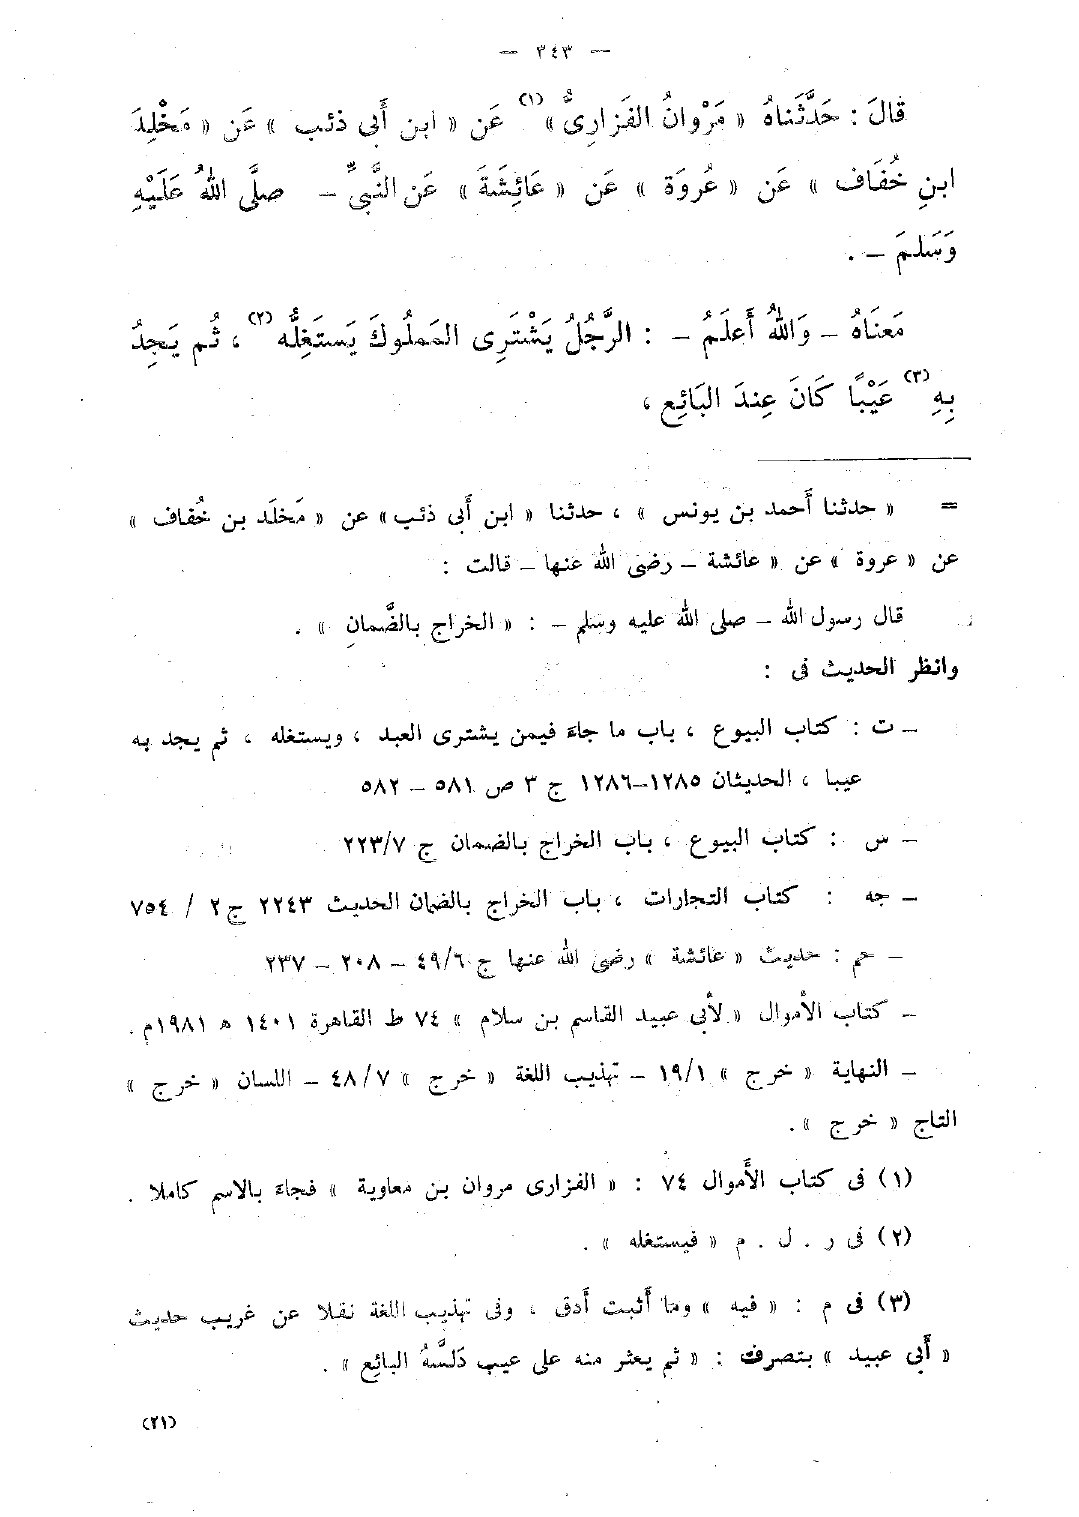 — ٣٤٣ —
قالَ : حَدَّثَناهُ « مَرْوانُ الفَزارِىُّ »(١) عَن « ابن أَبى ذئب » عَن « مَخْلِدَ
ابنِ خُفَاف » عَن « عُروَة » عَن « عَائِشَةَ » عَن النَّبىِّ — صلَّى اللهُ عَلَيْهِ
وَسَلمَ — .
مَعنَاهُ — وَاللهُ أَعلَمُ — : الرَّجُلُ يَشْتَرِى المَملُوكَ يَستَغِلُّه(٢) ، ثُم يَجِدُ
بِهِ(٣) عَيْبًا كَانَ عِندَ البَائِع ،
= « حدثنا أَحمد بن يونس » ، حدثنا « ابن أَبى ذئب» عن « مَخلَد بن خُفاف »
عن « عروة » عن « عائشة — رضى الله عنها — قالت :
قال رسول الله — صلى الله عليه وسلم — : « الخراج بالضَّمانِ » .
وانظر الحديث فى :
— ت : كتاب البيوع ، باب ما جاءَ فيمن يشترى العبد ، ويستغله ، ثم يجد به
عيبا ، الحديثان ١٢٨٥—١٢٨٦ ج ٣ ص ٥٨١ — ٥٨٢
— س : كتاب البيوع ، باب الخراج بالضمان ج ٢٢٣/٧
— جه : كتاب التجارات ، باب الخراج بالضمان الحديث ٢٢٤٣ ج ٢ / ٧٥٤
— حم : حديث « عائشة » رضى الله عنها ج ٤٩/٦ — ٢٠٨ — ٢٣٧
— كتاب الأَموال « لأَبى عبيد القاسم بن سلام » ٧٤ ط القاهرة ١٤٠١ ه ١٩٨١م .
— النهاية « خرج » ١٩/١ — تهذيب اللغة « خرج » ٤٨/٧ — اللسان « خرج »
التاج « خرج » .
(١) فى كتاب الأَموال ٧٤ : « الفزارى مروان بن معاوية » فجاءَ بالاسم كاملا .
(٢) فى ر . ل . م « فيستغله » .
(٣) فى م : « فيه » وما أَثبت أَدق ، وفى تهذيب اللغة نقلا عن غريب حديث
« أَبى عبيد » بتصرف : « ثم يعثر منه على عيب دَلَّسَهُ البائِع » .
(٢١)